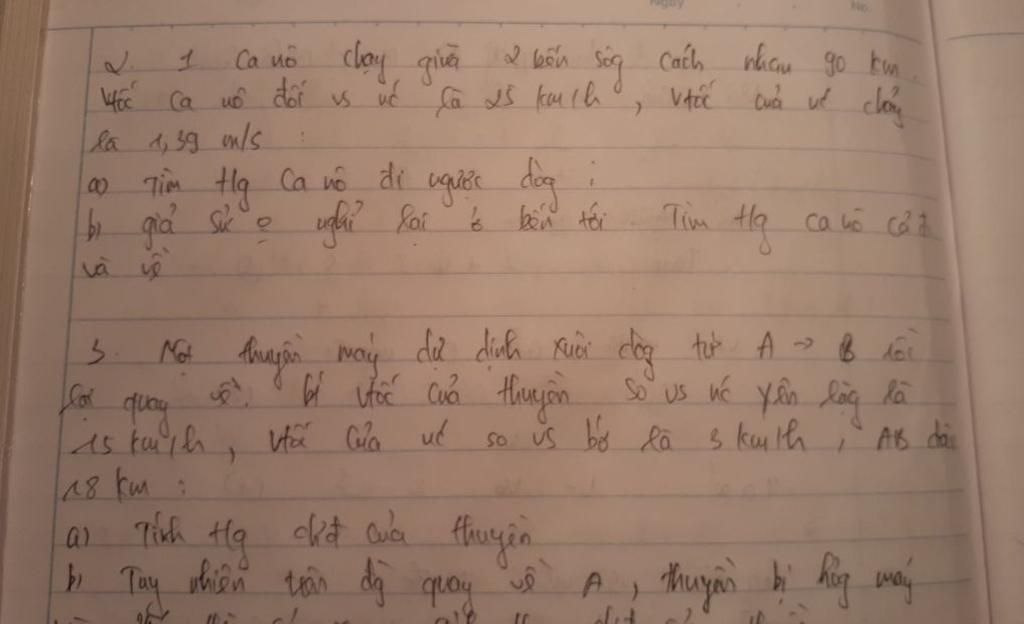 Ngày
No.
2. 1 Ca nô chạy giữa 2 bến sôg cách nhau 90 km.
Vtốc ca nô đối vs nc là 25 km/h, vtốc của nc chảy
là 1,39 m/s :
a) Tìm tg ca nô đi ngược dòg ;
b) giả sử k nghỉ lại ở bến tới. Tìm tg ca nô cả đ
và về
3. Một thuyền máy dự định xuôi dòg từ A → B rồi
lại quay về. bt vtốc của thuyền so vs nc yên lặg là
15 km/h, vtốc của nc so vs bờ là 3 km/h, AB dài
18 km :
a) Tính tg cđ của thuyền
b) Tuy nhiên trên đg quay về A, thuyền bị hỏg máy